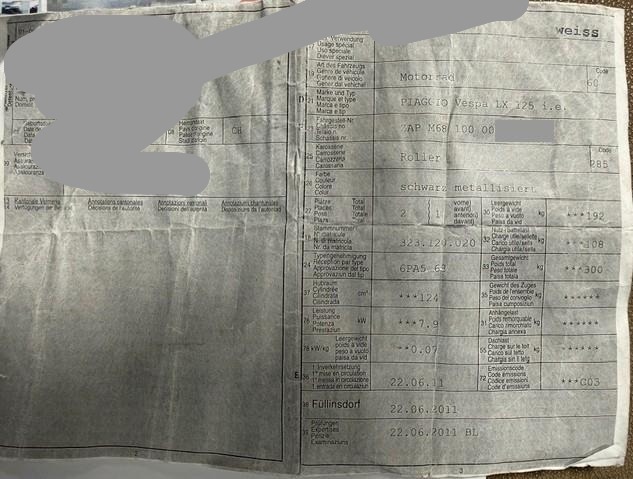 weiss
Verwendung
Usage spécial
Uso speciale
Diever spezial
19 Art des Fahrzeugs
Genre de véhicule
Genere di veicolo
Gener dal vehichel
Motorrad
Code
60
D 21 Marke und Typ
Marque et type
Marca e tipo
Marca e tip
PIAGGIO Vespa LX 125 i.e.
Fahrgestell-Nr.
Châssis no
Telaio n.
Schassis nr.
ZAP M68 100 00
25 Karosserie
Carrosserie
Carrozzeria
Carossaria
Roller
Code
285
26 Farbe
Couleur
Colore
Colur
schwarz metallisiert
27 Plätze Total
Places Total
Posti Totale
Plazs Total
2 (1 vorne)
avant)
anteriori)
davant)
30 Leergewicht
Poids à vide
Peso a vuoto
Paisa da vid
kg
***192
18 Stammnummer
N° matricule
N. di matricola
Nr. da matricla
323.120.020
32 Nutz-/Sattellast
Charge utile/sellette
Carico utile/sella
Chargia utila/sella
kg
***108
24 Typengenehmigung
Réception par type
Approvazione del tipo
Approvaziun dal tip
6PA5 63
33 Gesamtgewicht
Poids total
Peso totale
Paisa totala
kg
***300
37 Hubraum
Cylindrée
Cilindrata
Cilindrada
cm³
***124
35 Gewicht des Zuges
Poids de l'ensemble
Peso del convoglio
Paisa cumposiziun
kg
******
76 Leistung
Puissance
Potenza
Prestaziun
kW
***7.9
31 Anhängelast
Poids remorquable
Carico rimorchiato
Chargia annexa
kg
******
78 kW/kg
Leergewicht
poids à vide
peso a vuoto
paisa da vid
**0.07
55 Dachlast
Charge sur le toit
Carico sul tetto
Chargia sin il tetg
kg
******
E 36 1. Inverkehrsetzung
1re mise en circulation
1a messa in circolazione
1. entrada en circulaziun
22.06.11
72 Emissionscode
Code émissions
Codice emissioni
Code d'emissiuns
***G03
38 Füllinsdorf
22.06.2011
39 Prüfungen
Expertises
Perizie
Examinaziuns
22.06.2011 BL
3
Heimatstaat
Pays d'origine
Paese d'origine
Stadi d'origin
CH
09
13
14 Kantonale Vermerke
Verfügungen der Behörde
Annotations cantonales
Décisions de l'autorité
Annotazioni cantonali
Decisioni dell'autorità
Annotaziuns chantunalas
Disposiziuns da l'autoritad
2